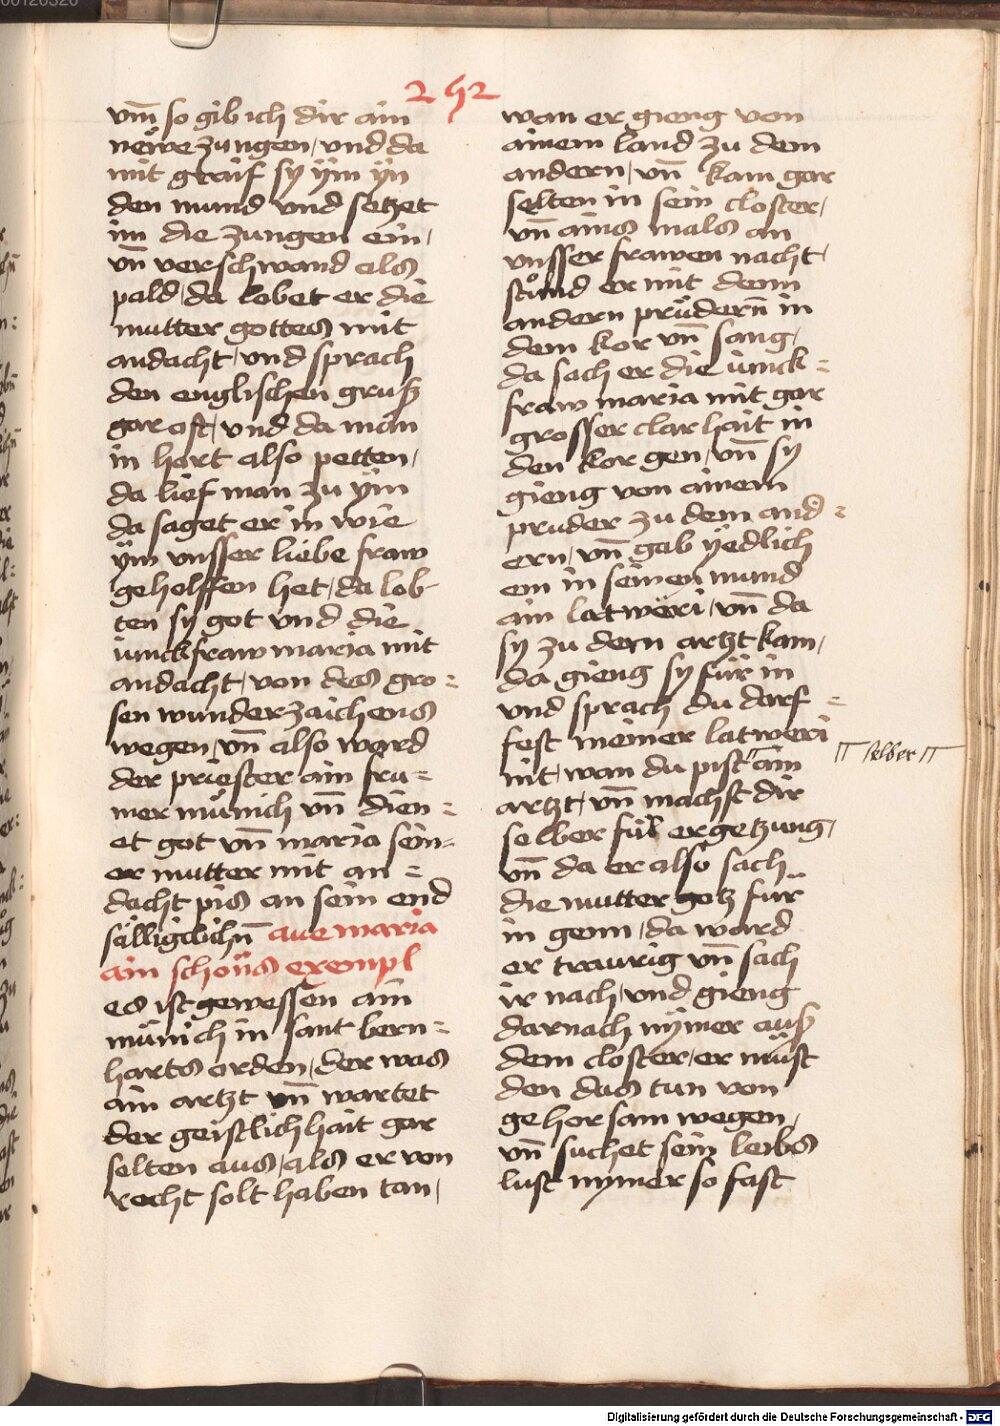 252
vm̄ so gib ich dir ain
newe zungen / vnd da
mit graif sy ÿm ÿn
den mund vnd setzet
im die zungen ein /
vn̄ verschwand als
pald / da lobet er die
mutter gottes mit
andacht / vnd sprach
den englischen gruß
gar oft / vnd da man
in hort also petten /
da lief man zu ÿm
da saget er in wie
ÿm vnsser liebe fraw
geholffen het / da lob-
ten sy got vnd die
iunckfraw maria mit
andacht / von des gro=
sen wunderzaichens
wegen / vn̄ also ward
der priester ain fru=
mer mu̇nich vn̄ dien=
et got vn̄ maria sein=
er mutter mit an=
dacht pis an sein end
sälligclichn̄ aue maria
ain schöns exempl
es ist gewessen ain
mu̇nich in sant bern=
harts orden / der was
ain artzt vn̄ wartet
der geistlichhait gar
selten aus / als er von
recht solt haben tan /
wan er gieng von
ainem land zu dem
andern / vn̄ kam gar
selten in sein closter /
vn̄ ains mals an
vnsser frawen nacht /
stu̇nd er mit denn
andern pru̇dern̄ in
dem kor vn̄ sang /
da sach er die iunck=
fraw maria mit gar
grosser clarhait in
den kor gen / vn̄ sy
gieng von ainem
pruder zu dem and=
ern / vn̄ gab ÿedlich
em in seinen mund
ain latweri / vn̄ da
sy zu dem artzt kam /
da gieng sy für in
vnd sprach du darf=
fest meiner latweri
nit / wan du pist ain
selber
artzt / vn̄ machst dir
selber fül ergetzung /
vn̄ da er also sach
die mutter gotz für
in genn / da ward
er traurig vn̄ sach
ir nach / vnd gieng
darnach nÿmer auß
dem closter / er müst
den das tun von
gehorsam wegen /
vn̄ suchet sein leibs
lust nymer so fast
Digitalisierung gefördert durch die Deutsche Forschungsgemeinschaft - DFG